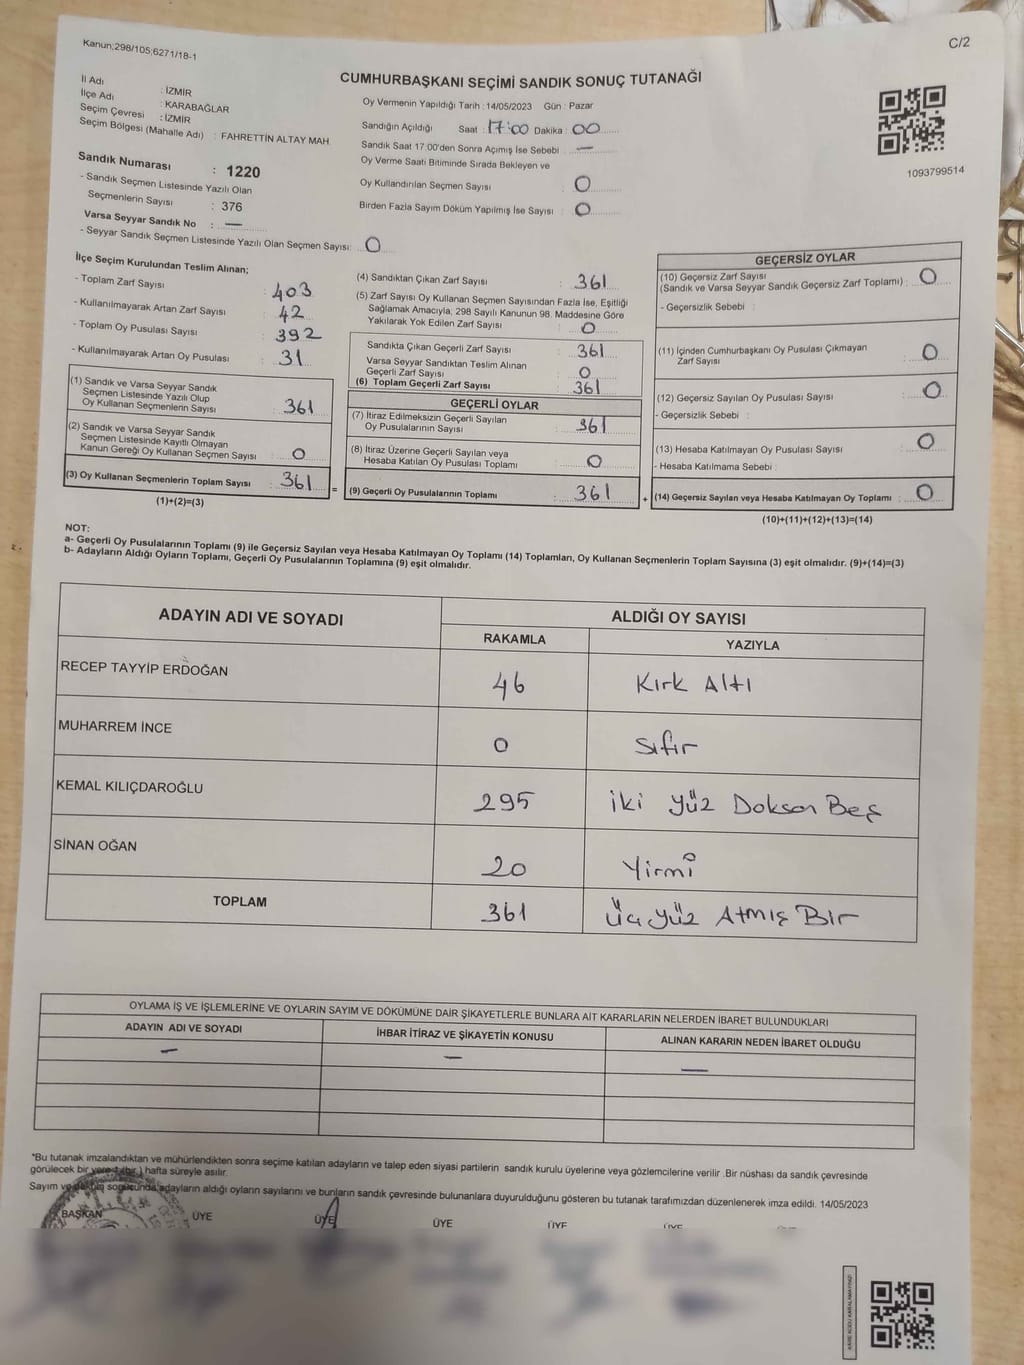 Kanun;298/105;6271/18-1
C/2
CUMHURBAŞKANI SEÇİMİ SANDIK SONUÇ TUTANAĞI
İl Adı : İZMİR
İlçe Adı : KARABAĞLAR
Seçim Çevresi : İZMİR
Seçim Bölgesi (Mahalle Adı) : FAHRETTİN ALTAY MAH
Sandık Numarası : 1220
- Sandık Seçmen Listesinde Yazılı Olan
Seçmenlerin Sayısı : 376
Varsa Seyyar Sandık No : —
- Seyyar Sandık Seçmen Listesinde Yazılı Olan Seçmen Sayısı: 0
Oy Vermenin Yapıldığı Tarih : 14/05/2023 Gün : Pazar
Sandığın Açıldığı Saat : 17:00 Dakika : 00
Sandık Saat 17.00'den Sonra Açımış İse Sebebi : —
Oy Verme Saati Bitiminde Sırada Bekleyen ve
Oy Kullandırılan Seçmen Sayısı : 0
Birden Fazla Sayım Döküm Yapılmış İse Sayısı : 0
1093799514
İlçe Seçim Kurulundan Teslim Alınan;
- Toplam Zarf Sayısı : 403
- Kullanılmayarak Artan Zarf Sayısı : 42
- Toplam Oy Pusulası Sayısı : 392
- Kullanılmayarak Artan Oy Pusulası : 31
(1) Sandık ve Varsa Seyyar Sandık
Seçmen Listesinde Yazılı Olup
Oy Kullanan Seçmenlerin Sayısı : 361
(2) Sandık ve Varsa Seyyar Sandık
Seçmen Listesinde Kayıtlı Olmayan
Kanun Gereği Oy Kullanan Seçmen Sayısı : 0
(3) Oy Kullanan Seçmenlerin Toplam Sayısı : 361
(1)+(2)=(3)
(4) Sandıktan Çıkan Zarf Sayısı : 361
(5) Zarf Sayısı Oy Kullanan Seçmen Sayısından Fazla İse, Eşitliği
Sağlamak Amacıyla, 298 Sayılı Kanunun 98. Maddesine Göre
Yakılarak Yok Edilen Zarf Sayısı : 0
Sandıkta Çıkan Geçerli Zarf Sayısı : 361
Varsa Seyyar Sandıktan Teslim Alınan
Geçerli Zarf Sayısı : 0
(6) Toplam Geçerli Zarf Sayısı : 361
GEÇERLİ OYLAR
(7) İtiraz Edilmeksizin Geçerli Sayılan
Oy Pusulalarının Sayısı : 361
(8) İtiraz Üzerine Geçerli Sayılan veya
Hesaba Katılan Oy Pusulası Toplamı : 0
= (9) Geçerli Oy Pusulalarının Toplamı : 361
GEÇERSİZ OYLAR
(10) Geçersiz Zarf Sayısı
(Sandık ve Varsa Seyyar Sandık Geçersiz Zarf Toplamı) : 0
- Geçersizlik Sebebi :
(11) İçinden Cumhurbaşkanı Oy Pusulası Çıkmayan
Zarf Sayısı : 0
(12) Geçersiz Sayılan Oy Pusulası Sayısı : 0
- Geçersizlik Sebebi :
(13) Hesaba Katılmayan Oy Pusulası Sayısı : 0
- Hesaba Katılmama Sebebi :
+ (14) Geçersiz Sayılan veya Hesaba Katılmayan Oy Toplamı : 0
(10)+(11)+(12)+(13)=(14)
NOT:
a- Geçerli Oy Pusulalarının Toplamı (9) ile Geçersiz Sayılan veya Hesaba Katılmayan Oy Toplamı (14) Toplamları, Oy Kullanan Seçmenlerin Toplam Sayısına (3) eşit olmalıdır. (9)+(14)=(3)
b- Adayların Aldığı Oyların Toplamı, Geçerli Oy Pusulalarının Toplamına (9) eşit olmalıdır.
ADAYIN ADI VE SOYADI ALDIĞI OY SAYISI
RAKAMLA YAZIYLA
RECEP TAYYİP ERDOĞAN 46 Kırk Altı
MUHARREM İNCE 0 Sıfır
KEMAL KILIÇDAROĞLU 295 İki Yüz Doksan Beş
SİNAN OĞAN 20 Yirmi
TOPLAM 361 Üç Yüz Atmış Bir
OYLAMA İŞ VE İŞLEMLERİNE VE OYLARIN SAYIM VE DÖKÜMÜNE DAİR ŞİKAYETLERLE BUNLARA AİT KARARLARIN NELERDEN İBARET BULUNDUKLARI
ADAYIN ADI VE SOYADI İHBAR İTİRAZ VE ŞİKAYETİN KONUSU ALINAN KARARIN NEDEN İBARET OLDUĞU
— — —
*Bu tutanak imzalandıktan ve mühürlendikten sonra seçime katılan adayların ve talep eden siyasi partilerin sandık kurulu üyelerine veya gözlemcilerine verilir .Bir nüshası da sandık çevresinde
görülecek bir yere 1 (bir ) hafta süreyle asılır.
Sayım ve döküm sonucunda adayların aldığı oyların sayılarını ve bunların sandık çevresinde bulunanlara duyurulduğunu gösteren bu tutanak tarafımızdan düzenlenerek imza edildi. 14/05/2023
BAŞKAN ÜYE ÜYE ÜYE ÜYE ÜYE